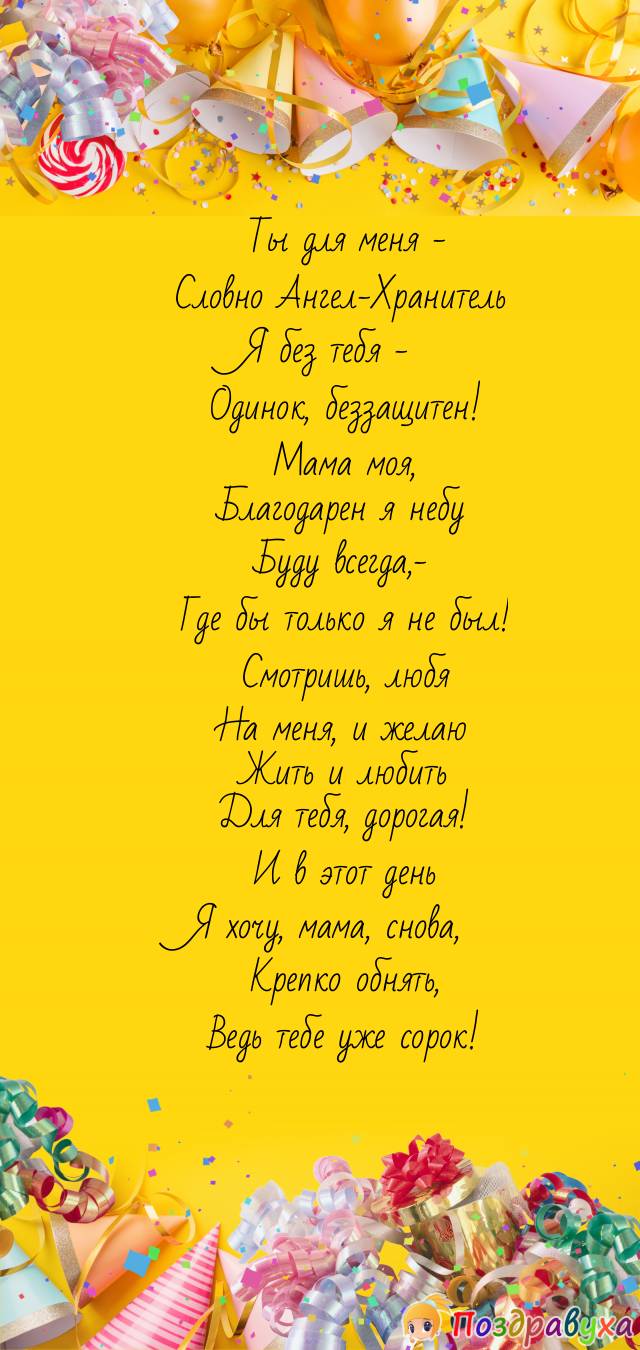 Ты для меня -
Словно Ангел-Хранитель
Я без тебя -
Одинок, беззащитен!
Мама моя,
Благодарен я небу
Буду всегда,-
Где бы только я не был!
Смотришь, любя
На меня, и желаю
Жить и любить
Для тебя, дорогая!
И в этот день
Я хочу, мама, снова,
Крепко обнять,
Ведь тебе уже сорок!
Поздравуха